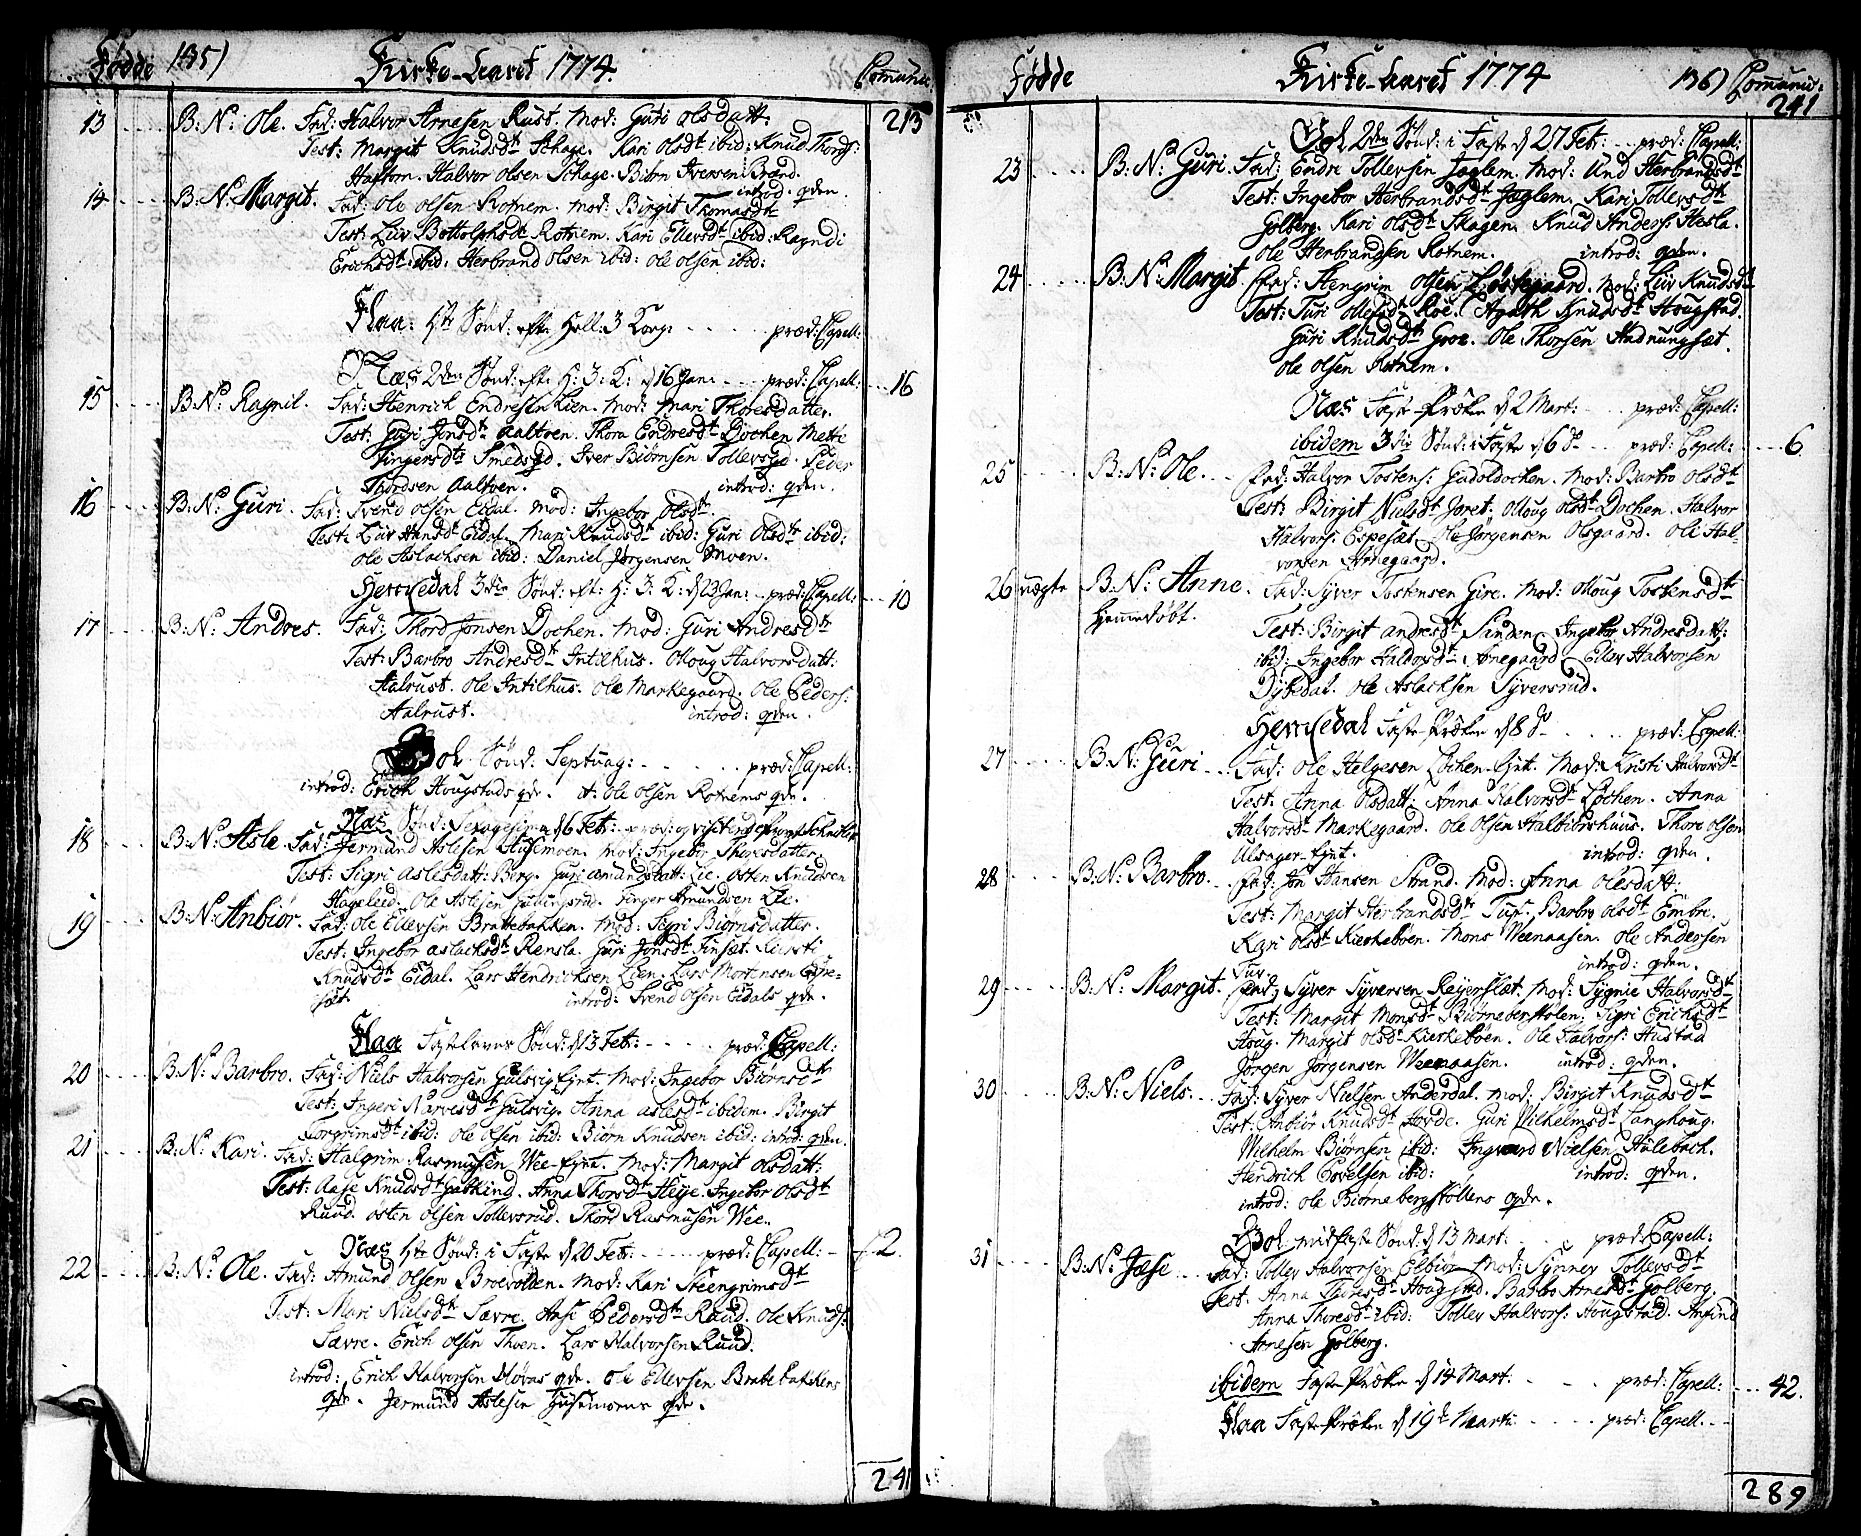 Fødde 135) Kirke-Aaret 1774 Comunic:
13 B: N: Ole. Fad: Halvor Arnesen Rust. Mod: Guri Olsdatt: 213
Test: Margit Knudsdtr Schage. Kari Olsdt ibid: Knud Thords:
Haftorn. Halvor Olsen Schage. Biørn Iversen Brand.
introd. qden.
14 B: N: Margit. Fad: Ole Olsen Rotnem. Mod: Birgit Thomasdtr
Test: Liv Bottolphsdtr Rotnem. Kari Ellevsdt ibid: Ragndi
Erichsdt ibid: Herbrand Olsen ibid: Ole Olsen ibid:
Flaa: 1ste Sønd: efter Hell: 3 Kong: præd: Capell:
Næs 2den Sønd: eft: H: 3: K: d 16 Jan: præd: Capell: 16
15 B: N: Ragnil. Fad: Henrich Endresen Lien. Mod: Mari Thoresdatter.
Test: Guri Jonsdtr Aaltven. Thora Endresdtr Dochen. Mette
Fingersdtr Smedsgd. Iver Biørnsen Tollevsgd. Peder
Thordsen Aaltven. introd: qden.
16 B: N: Guri. Fad: Svend Olsen Eidal. Mod: Ingebor Olsdtr.
Test: Liv Hansdt Eidal. Mari Knudsdt ibid: Guri Olsdtr ibid:
Ole Aslachsen ibid: Daniel Jørgensen Moen.
Hemsedal 3die Sønd: eft: H: 3: K: d 23 Jan: præd: Capell: 10
17 B: N: Andres. Fad: Thord Jonsen Dochen. Mod: Guri Andresdtr
Test: Barbro Andresdtr Intilhus. Moug Halvorsdatt:
Halrust. Ole Intilhus. Ole Markegaard. Ole Peders:
Halrust. introd: qden.
Gol Sønd: Septuag: præd: Capell:
introd: Erich Hougstads qde. it: Ole Olsen Rotnems qde.
Næs Sønd: Sexagesima d 6 Febr: præd:
18 B: N: Asle. Fad: Jermund Aslesen Husemoen. Mod: Ingebor Thoresdatter.
Test: Sigri Aslesdatt: Berg. Guri Amundsdatt: Lie. Osten Knudsen
Hageleed. Ole Aslesen. Finger Amundsen Lie.
19 B: N: Anbiør. Fad: Ole Ellevsen Brattebakken. Mod: Sigri Biørnsdatter.
Test: Ingebor Aslachsdt Rensla. Guri Jonsdtr Finset. Kirsti
Knudsdt Eidal. Lars Hendrichsen Lien. Lars Mortensen Gire-
sæt. introd: Svend Olsen Eidals qde.
Flaa Fastelavns Sønd: d 13 Febr: præd: Capell:
20 B: N: Barbro. Fad: Niels Halvorsen Gulsvig Ejnt. Mod: Ingebor Biørnsdtr
Test: Ingeri Narvesdtr Gulsvig. Anna Aslesdt ibidem. Birgit
Torgrimsdt ibid: Ole Olsen ibid: Biørn Knudsen ibid: introd: qden.
21 B: N: Kari. Fad: Halgrim Rasmussen Wee-Ejnt. Mod: Margit Olsdatt:
Test: Aase Knudsdt Gulkind. Anna Thorsdt Heye. Ingebor Olsdtr
Ruud. Osten Olsen Tollevsrud. Thord Rasmusen Wee.
Næs 1ste Sønd: i Faste d 20 Febr: præd: Capell: 2.
22 B: N: Ole. Fad: Amund Olsen Broevolden. Mod: Kari Steengrimsdtr
Test: Mari Nielsdtr Sævre. Aase Pedersdtr Ruud. Ole Knuds:
Sævre. Erich Olsen Thoen. Lars Halvorsen Ruud.
introd: Erich Halvorsen Møvas qde. Ole Ellevsen Bratebakkens
qde. Jermund Aslesen Husemoens qde.
241
Fødde Kirke-Aaret 1774 136) Comunic:
241
Gol 2den Sønd: i Faste d 27 Febr: præd: Capell:
23 B: N: Guri. Fad: Endre Tollevsen Jaglem. Mod: Und Herbrandsdtr
Test: Ingebor Herbrandsdtr Jaglem. Kari Tollevsdtr
Golberg. Kari Olsdt Skagen. Knud Anders: Hesla.
Ole Herbrandsen Rotnem. introd: qden.
24 B: N: Margit. Fad: Stengrim Olsen Løstegaard. Mod: Liv Knudsdtr
Test: Turi Ollesdtr Roe. Agath Knudsdt Hougstad.
Guri Knudsdtr Groe. Ole Thorsen Andnungsæt.
Ole Olsen Rotnem.
Næs Faste Præken d 2 Mart: præd: Capell:
ibidem 3die Sønd: i Faste d 6 do præd: Capell: 6
25 B: N: Ole. Fad: Halvor Tostens: Gadoldochen. Mod: Barbro Olsdtr
Test: Birgit Nielsdtr Joret. Moug Olsdtr Dochen. Halvor
Halvors: Espesæt. Ole Jørgensen Olsgaard. Ole Hal-
vorsen Arnegaard.
26 uægte B: N: Anne. Fad: Syver Tostensen Gire. Mod: Moug Tostensdtr
Hemmedøbt. Test: Birgit Andresdt Sunden. Ingebor Andresdatt:
ibid: Ingebor Haldorsdtr Arnegaard. Ellev Halvorsen
Dybedal. Ole Aslachsen Syversrud.
Hemsedal Faste Præken d 8 do præd: Capell:
27 B: N: Guri. Fad: Ole Helgesen Løchen-Ejnt. Mod: Kristi Halvorsdt
Test: Anna Olsdatt: Anna Halvorsdtr Løchen. Anna
Halvorsdt Markegaard. Ole Olsen Halbiørhuus. Thore Olsen
Ulsager-Ejnt. introd: qden.
28 B: N: Barbro. Fad: Jon Hansen Strand. Mod: Anna Olesdatt:
Test: Margit Herbrandsdtr Tuf. Barbro Olsdt Embre.
Kari Olsdt Kierkeboen. Mons Weenaasen. Ole Andersen
Tuv. introd: qden.
29 B: N: Margit. Fad: Syver Syversen Reyerslæt. Mod: Sygnie Halvorsdtr
Test: Margit Monsdt Biørnebergstolen. Sigri Erichsdtr
Houg. Margit Olsdtr Kierkebøen. Ole Halvors: Hustad
Jørgen Jørgensen Weenaasen. introd: qden.
30 B: N: Niels. Fad: Syver Nielsen Anderdal. Mod: Birgit Knudsdtr
Test: Anbiør Knudsdtr Hovde. Guri Wilhelmsdt Langhoug.
Wilhelm Biørnsen ibid: Ingvard Nielsen Hulebach.
Hendrich Povelsen ibid: introd: qden.
introd: Ole Biørnebergstøllens qde.
Gol Midfaste Sønd: d 13 Mart: præd: Capell:
31 B: N: Jase. Fad: Tollev Halvorsen Elbiør. Mod: Synnev Tollevsdtr
Test: Anna Thoresdtr Hougstad. Barbro Arnesdtr Golberg.
Anna Thoresdt ibid: Tollev Halvors: Hougstad. Amund
Arnesen Golberg.
ibidem Faste Præken d 14 Mart: præd: Capell: 42.
Flaa Faste Præken d 19 Marti: præd: Capell.
289